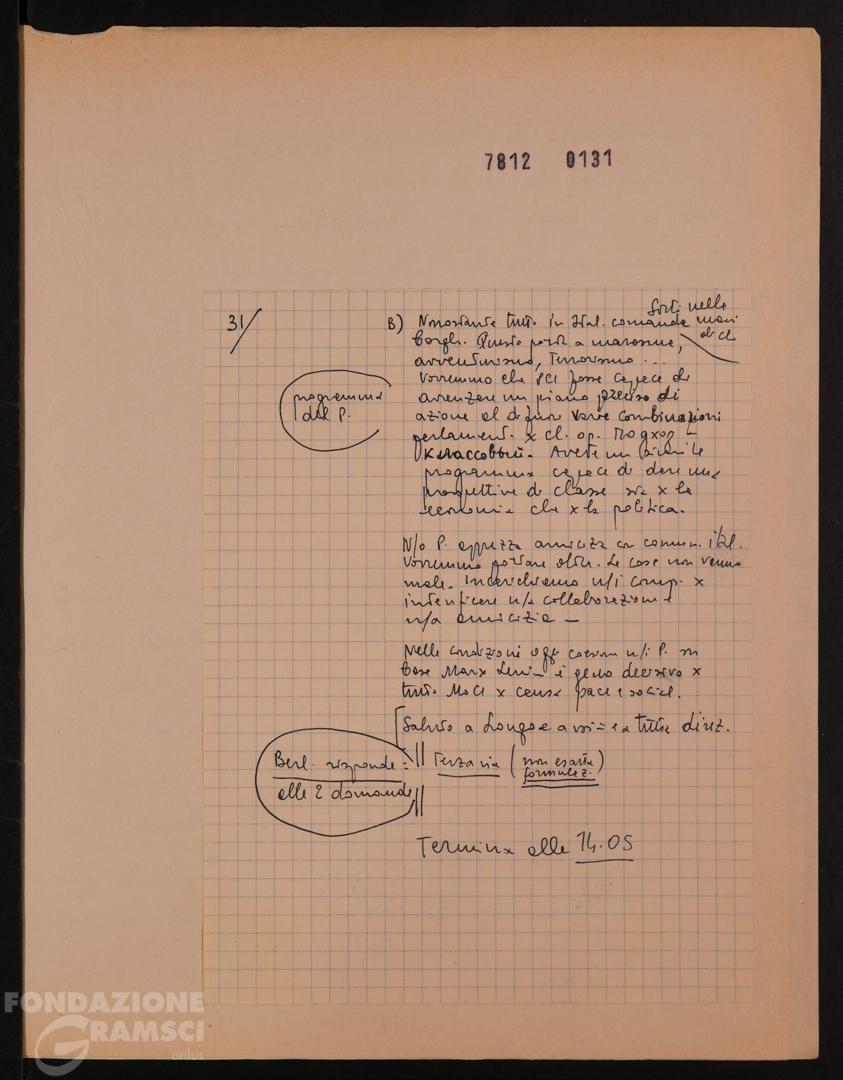 7812 0131
31/
B) Nonostante tutto in Ital. comanda
Sorti nelle
mani
di cl.
borgh. Questo porta a marasma,
avventurismo, terrorismo ...
Vorremmo che PCI fosse capace di
avanzare un piano preciso di
azione al di fuori varie combinazioni
parlament. x cl. op. Подход
классовый. Avete un
programma capace di dare una
prospettiva di classe sia x la
economia che x la politica.
programma
del P.
N/o P. apprezza amicizia con comun. ital.
Vorremmo portare oltre. Le cose non vanno
male. Incarichiamo n/i comp. x
intensificare n/a collaborazione e
n/a amicizia –
Nelle condizioni oggi coesione n/i P. su
base Marx Lenin è decisivo x
tutto MOCI x causa pace e social.
Saluto a Longo e a voi = e a tutta direz.
Berl. risponde =
alle 2 domande
Terza via (non esatta
formulaz.)
Termina alle 14.05
FONDAZIONE
GRAMSCI
onlus